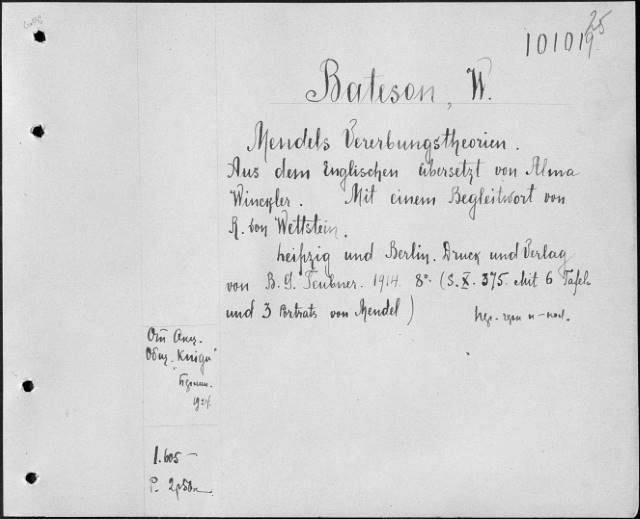 25
10101
Bateson, W.
Mendels Vererbungstheorien.
Aus dem Englischen übersetzt von Alma
Winckler. Mit einem Begleitwort von
R. von Wettstein.
Leipzig und Berlin. Druck und Verlag
von B. G. Teubner. 1914. 8° (S. X. 375. Mit 6 Tafel
und 3 Porträts von Mendel)
От Акц.
Общ. "Книга"
1924.
1.605 –